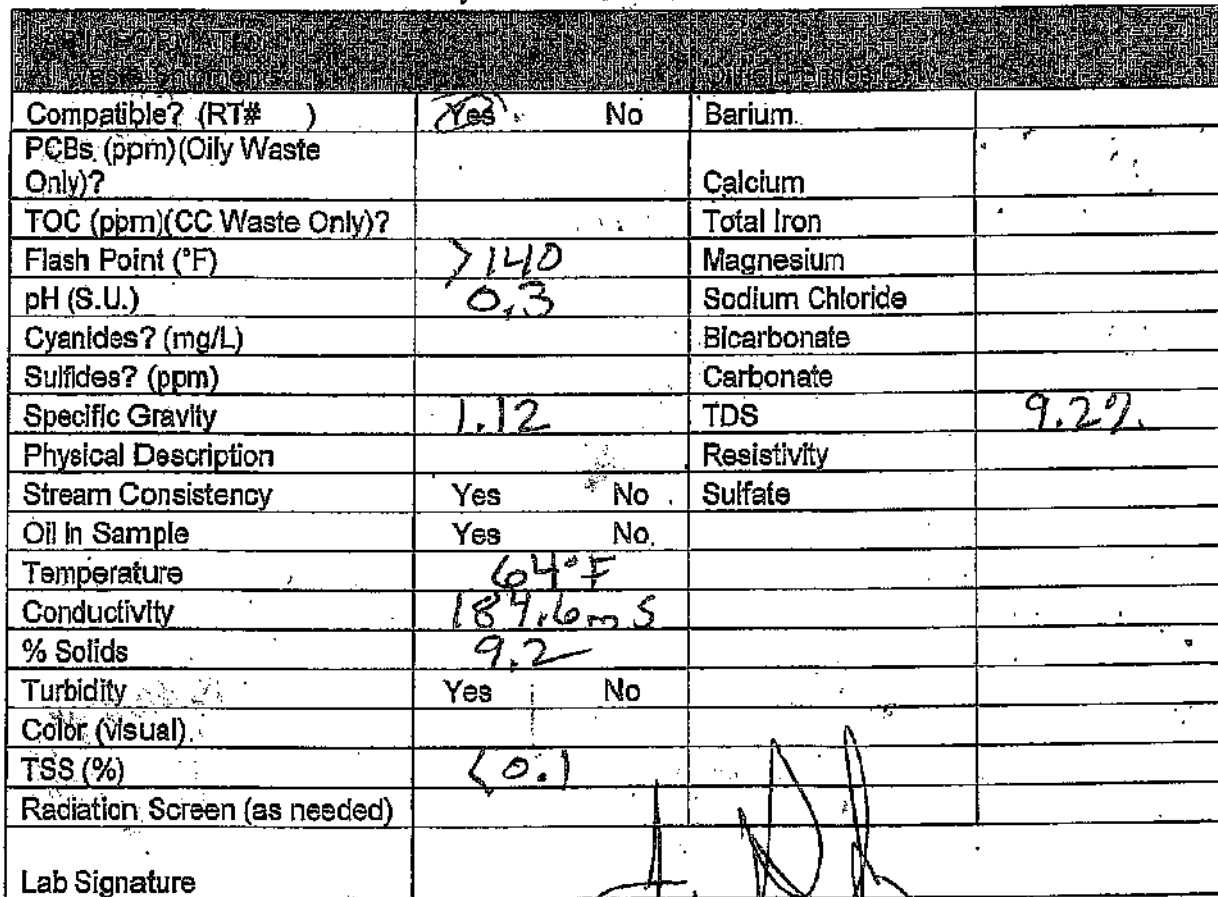 All Waste Shipments
Compatible? (RT# ) Yes No Barium
PCBs (ppm)(Oily Waste
Only)? Calcium
TOC (ppm)(CC Waste Only)? Total Iron
Flash Point (°F) >140 Magnesium
pH (S.U.) 0.3 Sodium Chloride
Cyanides? (mg/L) Bicarbonate
Sulfides? (ppm) Carbonate
Specific Gravity 1.12 TDS 9.2%
Physical Description Resistivity
Stream Consistency Yes No Sulfate
Oil in Sample Yes No
Temperature 64°F
Conductivity 184.6mS
% Solids 9.2
Turbidity Yes No
Color (visual)
TSS (%) <0.1
Radiation Screen (as needed)
Lab Signature